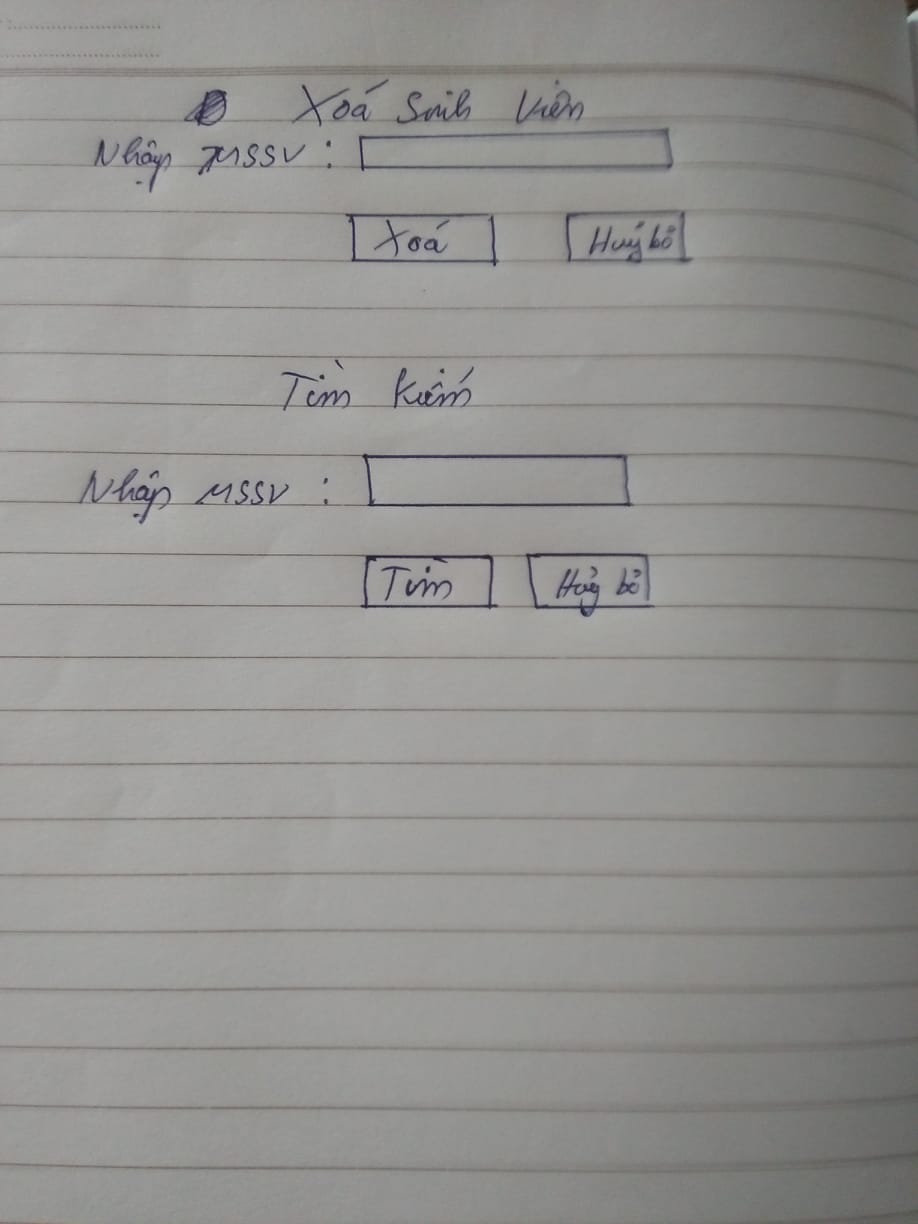 Xoá Sinh Viên
Nhập MSSV :
Xoá Huỷ bỏ
Tìm kiếm
Nhập MSSV :
Tìm Huỷ bỏ